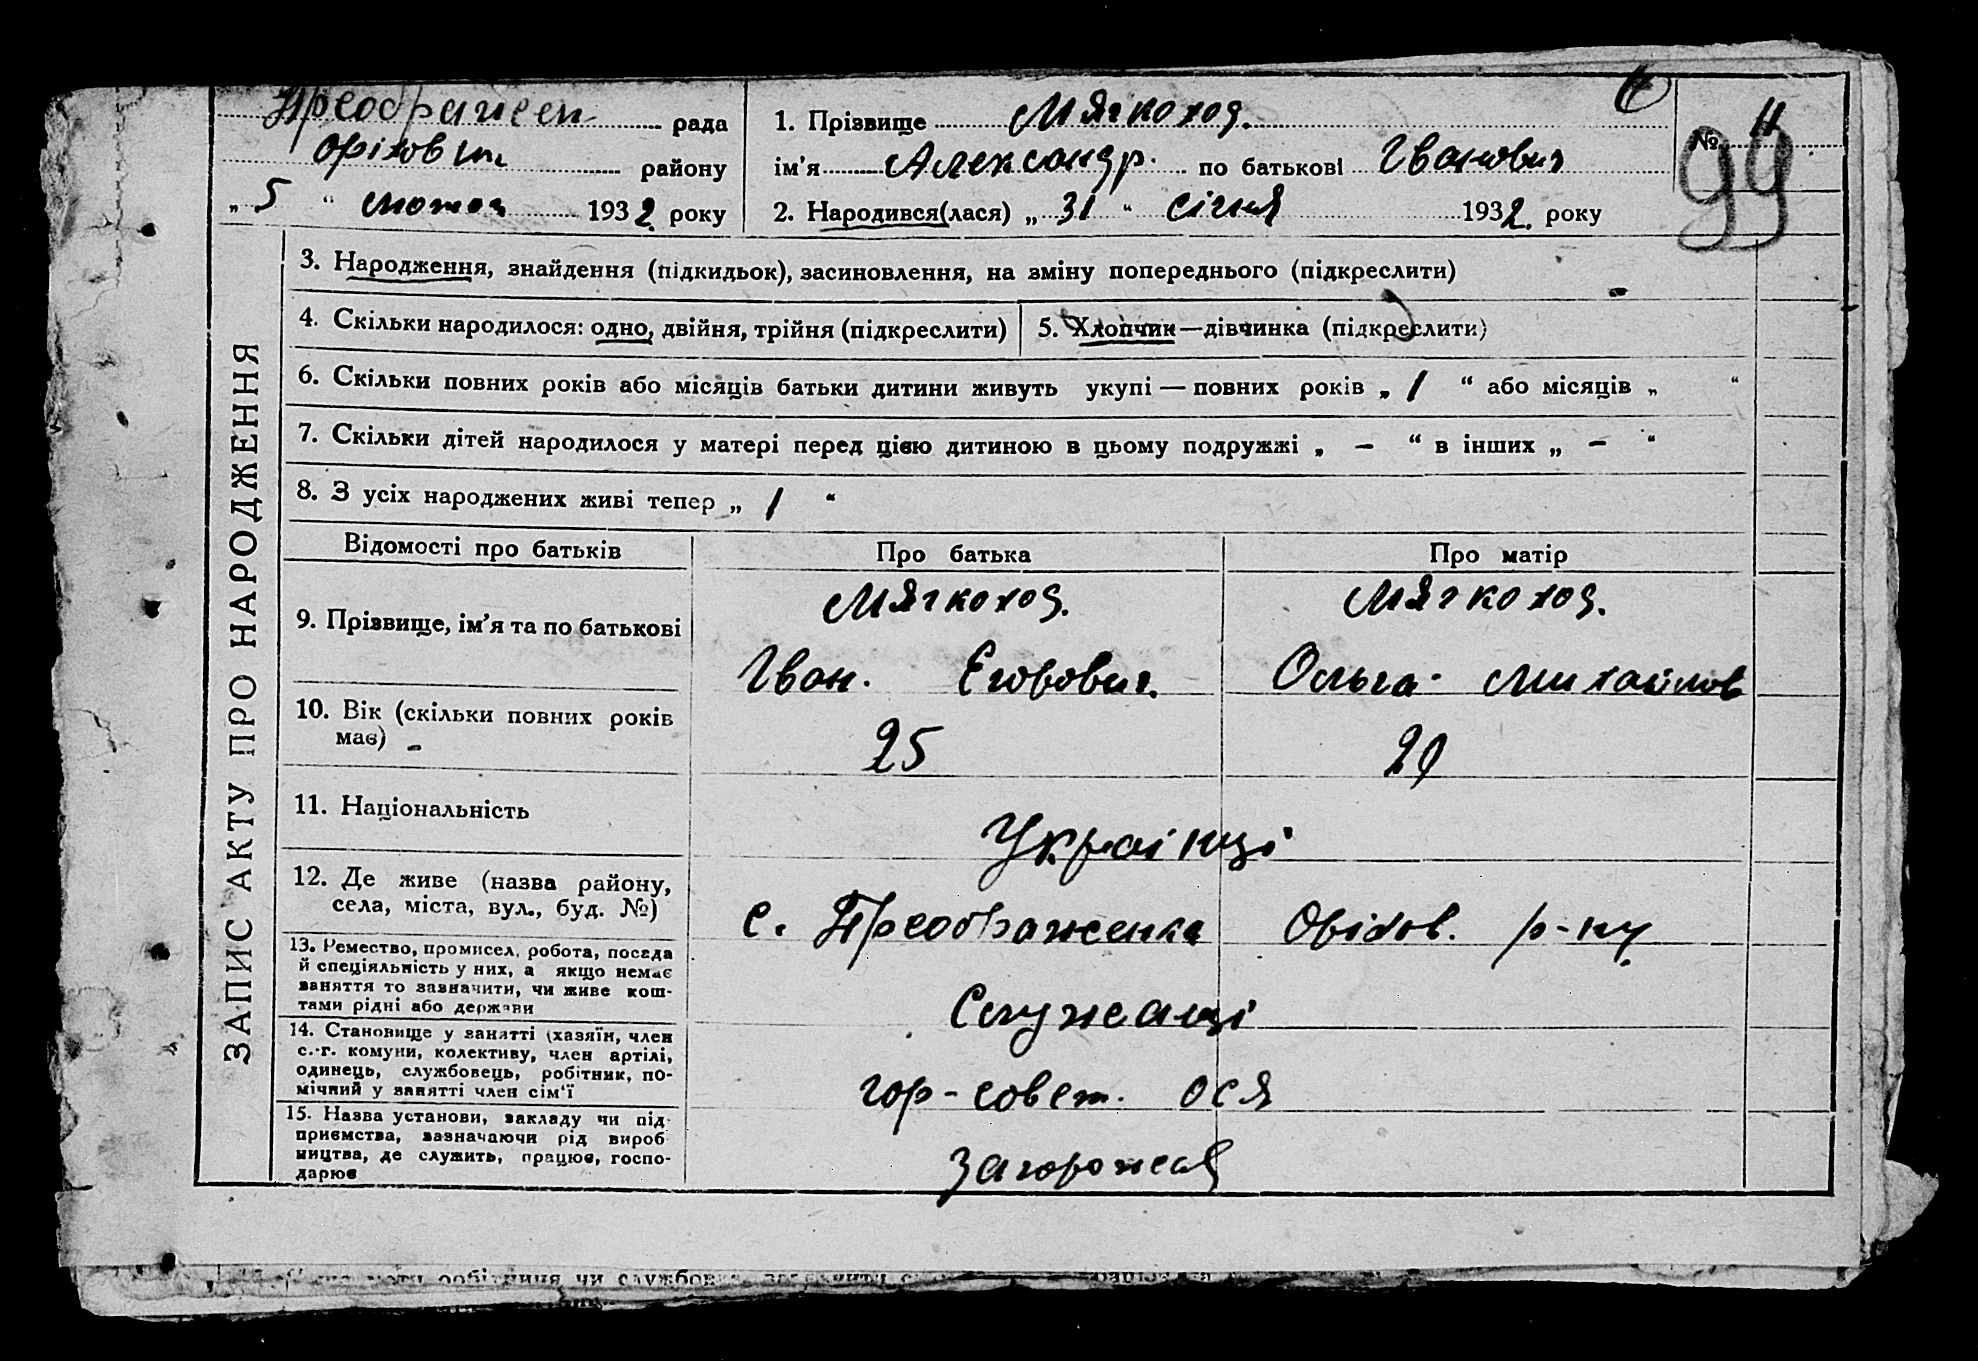 Преображен рада
Оріхов району
„ 5 “ лютого 1932 року
1. Прізвище Мягкоход.
ім’я Александр. по батькові Іванович
2. Народився(лася) „ 31 “ січня 1932 року
№ 11
99
ЗАПИС АКТУ ПРО НАРОДЖЕННЯ
3. Народження, знайдення (підкидьок), засиновлення, на зміну попереднього (підкреслити)
4. Скільки народилося: одно, двійня, трійня (підкреслити)
5. Хлопчик—дівчинка (підкреслити)
6. Скільки повних років або місяців батьки дитини живуть укупі — повних років „ 1 “ або місяців „ “
7. Скільки дітей народилося у матері перед цією дитиною в цьому подружжі „ – “ в інших „ – “
8. З усіх народжених живі тепер „ 1 “
Відомості про батьків
Про батька
Про матір
9. Прізвище, ім’я та по батькові
Мягкоход.
Іван. Егорович.
Мягкоход.
Ольга Михайлов
10. Вік (скільки повних років
має)
25
11. Національність
Українці
12. Де живе (назва району,
села, міста, вул., буд. №)
с. Преображенка Оріхов. р-ну
13. Ремество, промисел, робота, посада
й спеціяльність у них, а якщо немає
заняття то зазначити, чи живе кош-
тами рідні або держави
Служащі
14. Становище у занятті (хазяїн, член
с.-г. комуни, колективу, член артілі,
одинець, службовець, робітник, по-
мічний у занятті член сім’ї
гор-совет.
15. Назва установи, закладу чи під-
приємства, зазначаючи рід вироб
ництва, де служить, працює, госпо-
дарює